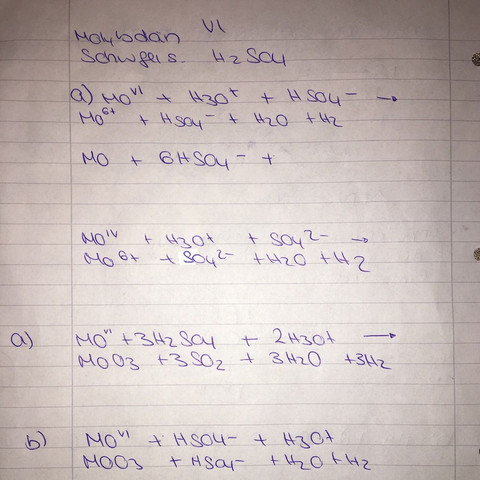 Molybdän VI
Schwefels. H2SO4
a) MO^VI + H3O^+ + HSO4^- →
MO^6+ + HSO4^- + H2O + H2
MO + 6HSO4^- +
MO^IV + H3O+ + SO4^2- →
MO^6+ + SO4^2- + H2O + H2
a) MO^VI + 3H2SO4 + 2H3O+ →
MOO3 + 3SO2 + 3H2O + 3H2
b) MO^VI + HSO4- + H3O+
MOO3 + HSO4- + H2O + H2